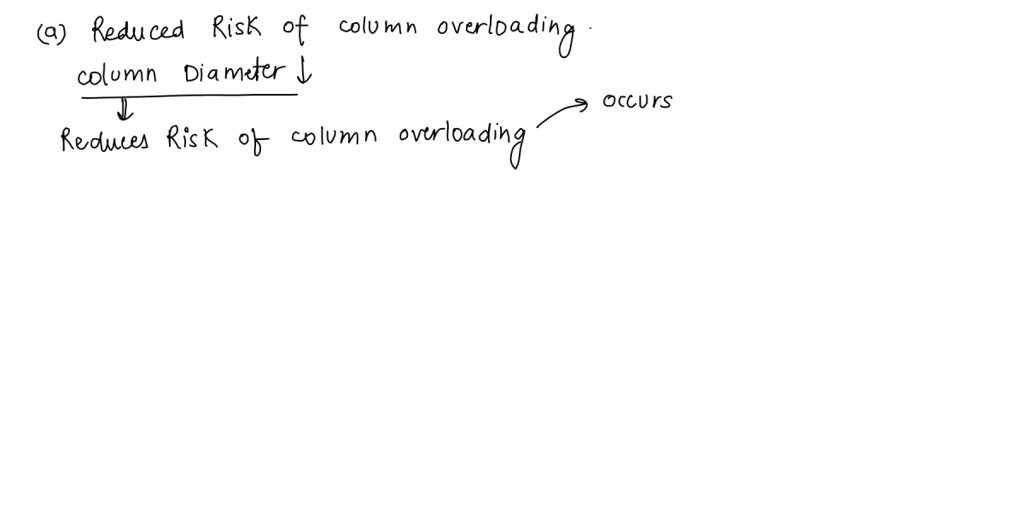 (a) Reduced Risk of column overloading.
column Diameter ↓
Reduces Risk of column overloading → occurs